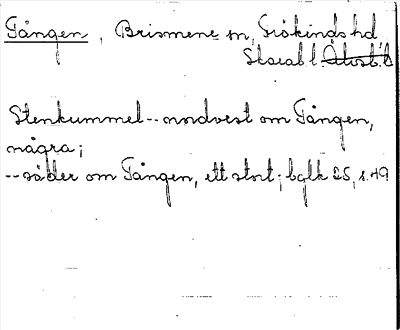 Gången, Brismene sn, Gisökinds hd,
Skarab l. Älvsb. l
Stenkummel -- nordvest om Gången,
några;
-- söder om Gången, ett stort; bglk 25, s. 49